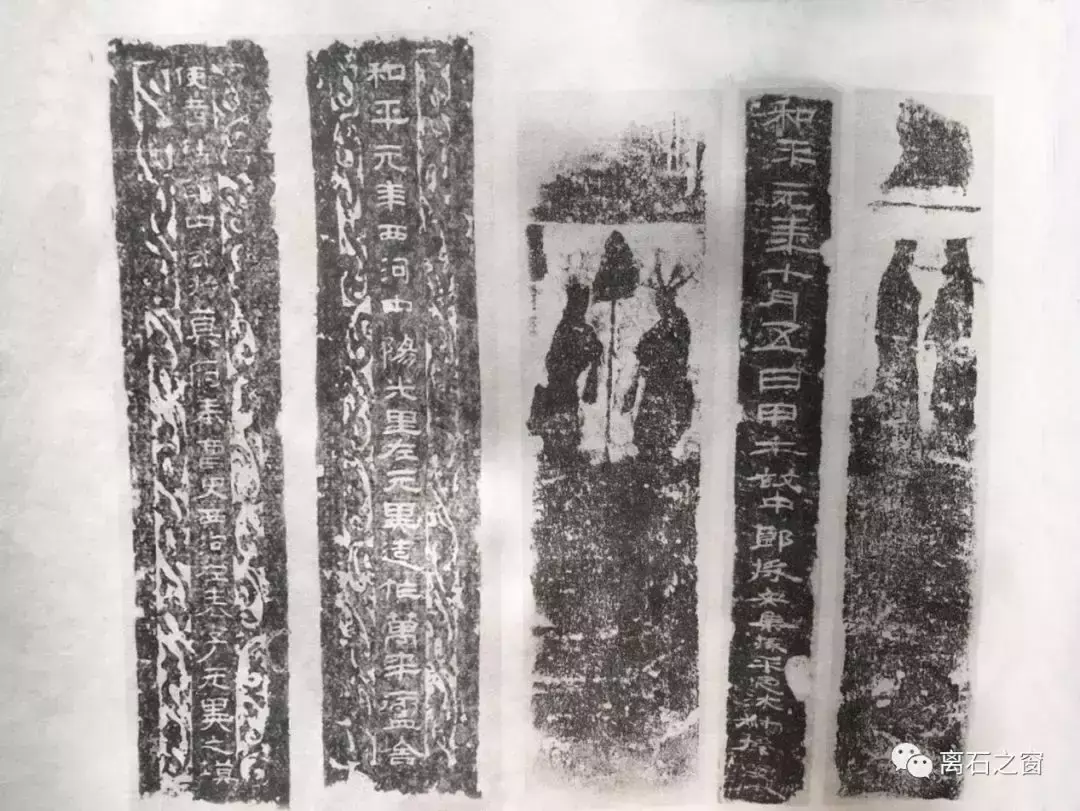 和平元年十月五日甲午故中郎掾安集掾平定沐叔孫
和平元年西河中陽光里左元異造作萬年廬舍
使者持節中郎將莫府奏曹史西河左表字元異之墓
离石之窗